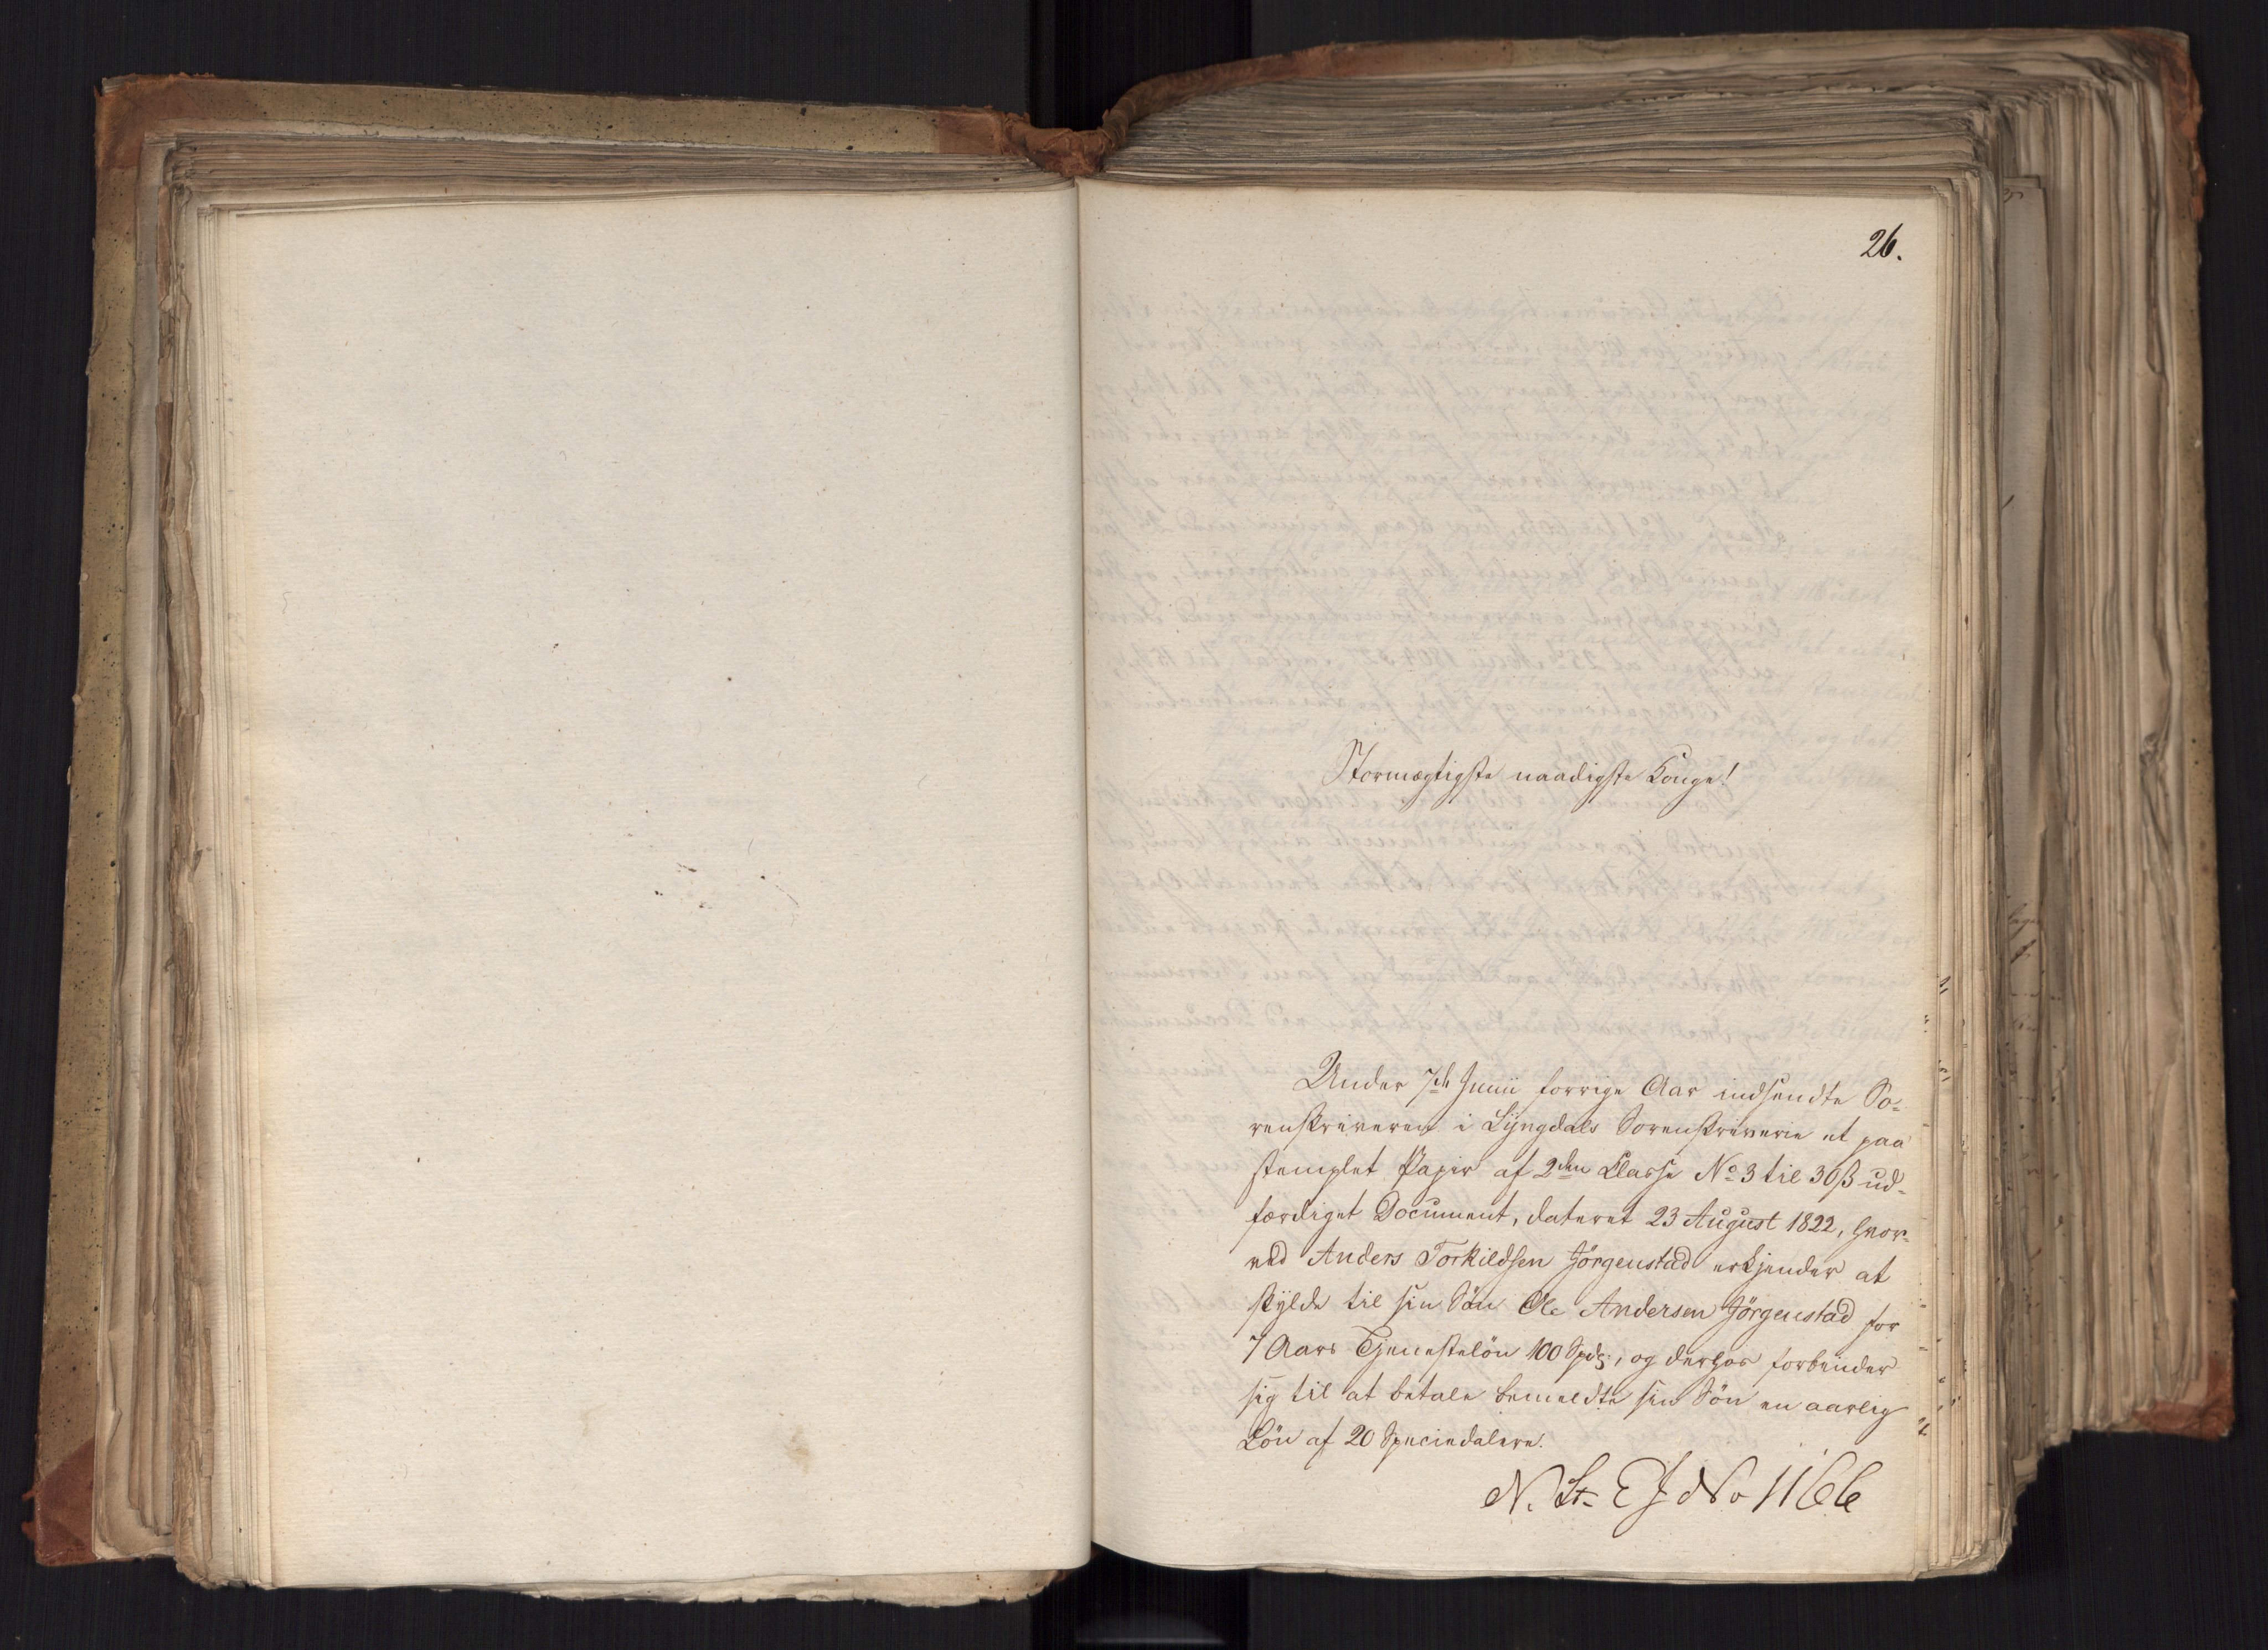 26.
Stormægtigste naadigste Konge!
Under 7de Junii forrige Aar indsendte So-
renskriveren i Lyngdals Sorenskriverie et paa
stemplet Papir af 2den Classe No 3 til 30 ß ud-
færdiget Document, dateret 23 August 1822, hvor-
ved Anders Torkildsen Jörgenstad erkjender at
skylde til sin Sön Ole Andersen Jörgenstad for
7 Aars Tjenestelön 100 Spd, og derhos forbinder
sig til at betale bemeldte sin Sön en aarlig
Lön af 20 Speciedalere.
N. St. E J No 1166